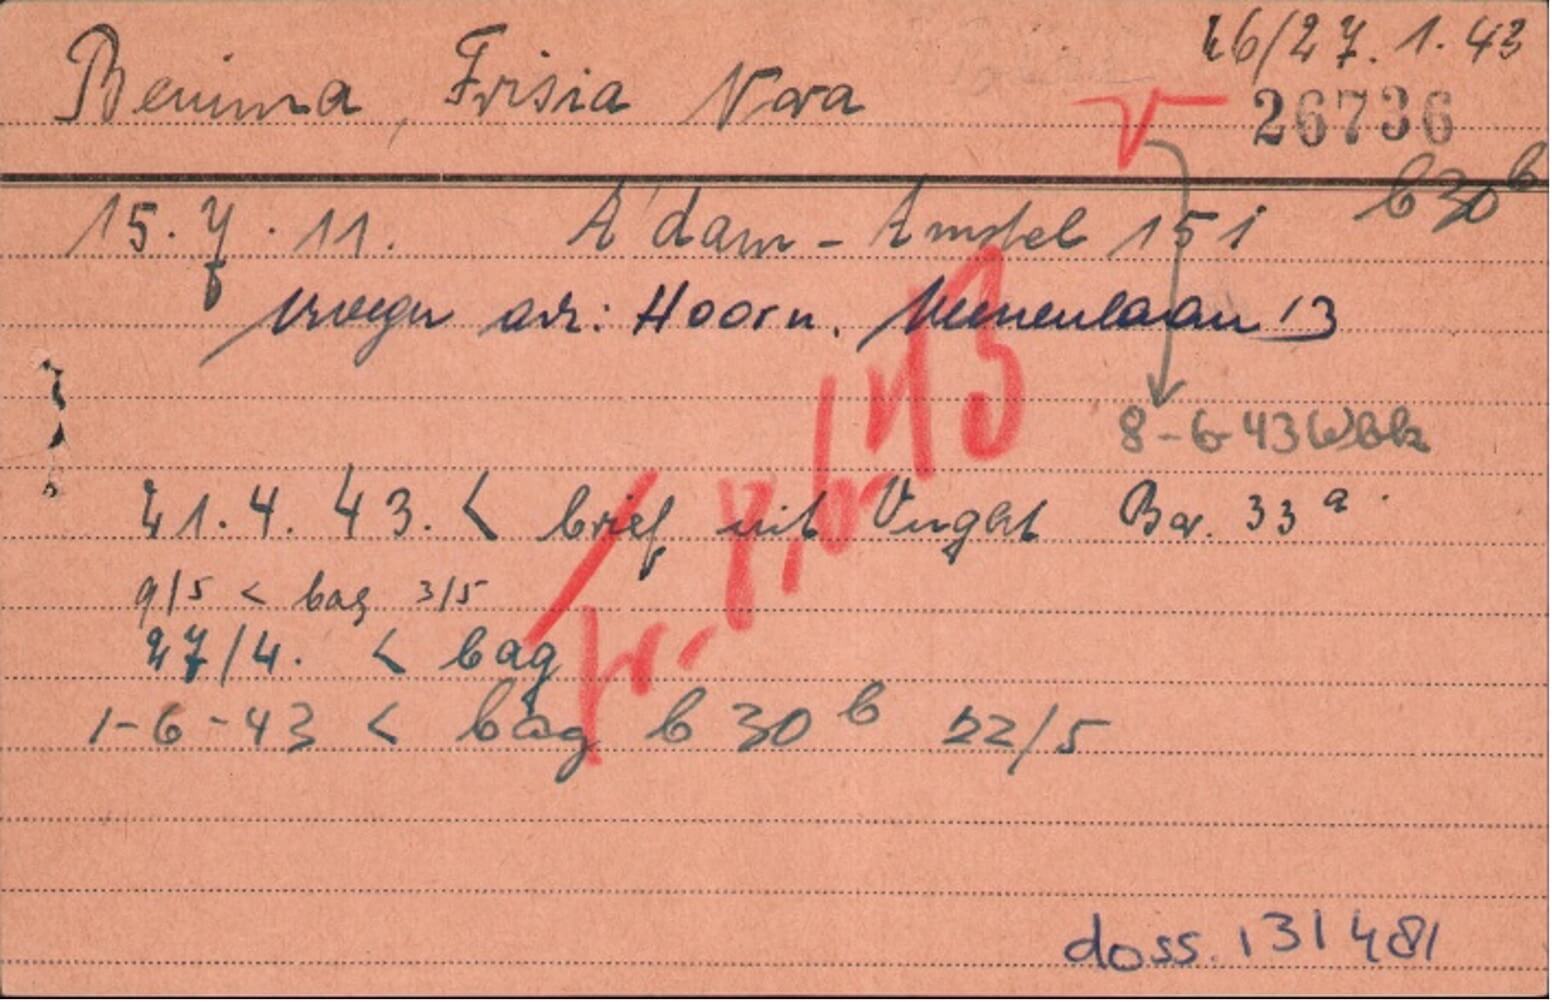 Benima, Frisia Nora
26/27.1.43
V 26736
b 30 b
15.7.11. A'dam - Amstel 151
vroeger adr: Hoorn. laan 13
8-6-43 Wbk
21.4.43. < brief uit Vught Bar. 33 a.
9/5 < bag 3/5
27/4. < bag
1-6-43 < bag b 30 b 22/5
Tr. 8/6 '43
doss. 131481